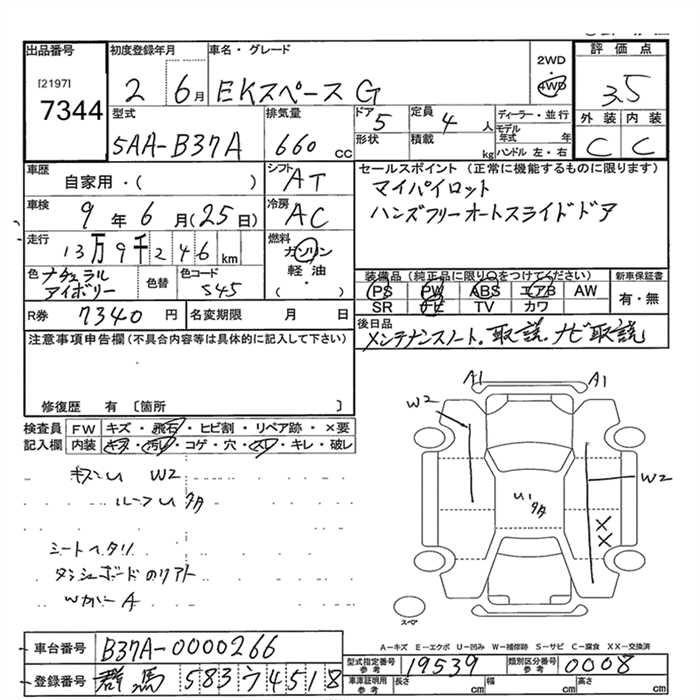 出品番号
[2197]
7344
初度登録年月
2 6月
車名・グレード
EKスペース G
2WD
4WD
評価点
3.5
外装 内装
C C
型式
5AA-B37A
排気量
660 cc
ドア
5
形状
定員
4 人
積載
kg
ディーラー・並行
モデル年式 年
ハンドル 左・右
車歴
自家用・( )
シフト
AT
セールスポイント(正常に機能するものに限ります)
マイパイロット
ハンズフリーオートスライドドア
車検
9年6月(25日)
冷房
AC
走行
13万9千246km
燃料
ガソリン
軽油・
( )
色
ナチュラル
アイボリー
色替
色コード
S45
装備品(純正品に限り○をつけてください)
PS PW ABS エアB AW
SR ナビ TV カワ
新車保証書
有・無
R券 7340円
名変期限 月 日
後日品
メンテナンスノート.取説.ナビ取説
注意事項申告欄(不具合内容等は具体的に記入して下さい)
修復歴 有 〔箇所 〕
検査員
記入欄
FW キズ・飛石・ヒビ割・リペア跡・×要
内装 キズ・汚れ・コゲ・穴・スレ・キレ・破レ
W2
ルーフ U タタ
シートヘタリ
ダッシュボードのリアト
Wカバー A
A1 A1
W2
W2
U1
タタ
X
X
スペア
A−キズ E−エクボ U−凹み W−補修跡 S−サビ C−腐食 XX−交換済
車台番号 B37A-0000266
登録番号 群馬 583 ワ 4518
型式指定番号
参考
19539
類別区分番号
参考
0008
車庫証明用
参考
長さ cm 幅 cm 高さ cm